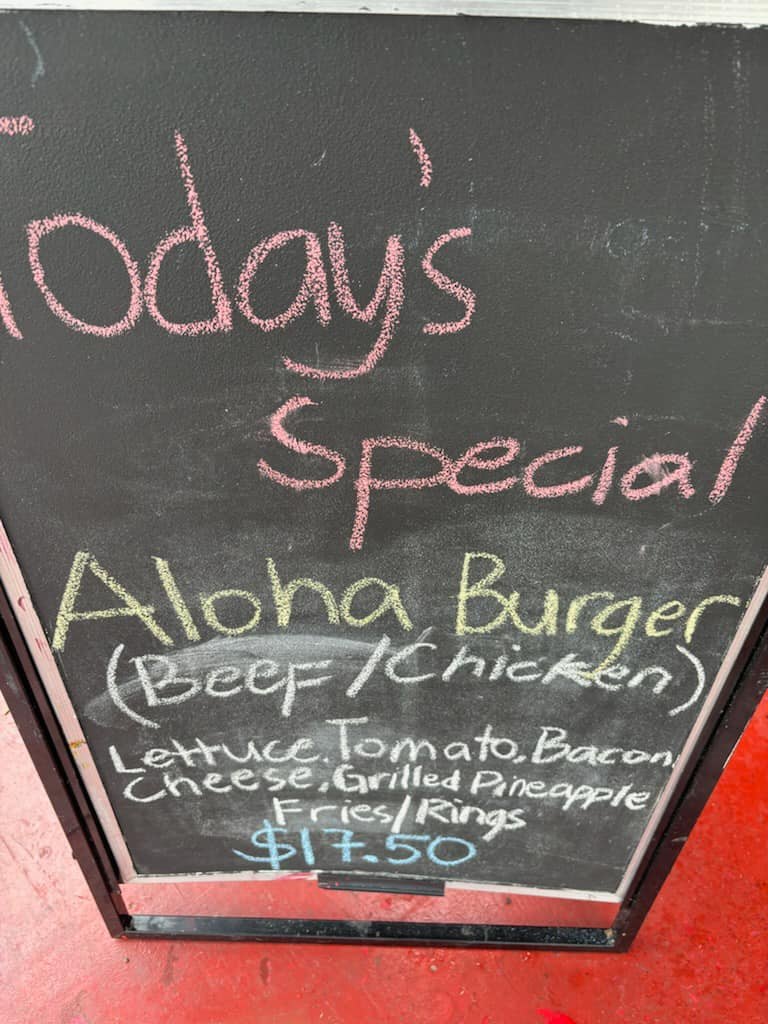 Today's
Special
Aloha Burger
(Beef/Chicken)
Lettuce, Tomato, Bacon,
Cheese, Grilled Pineapple
Fries/Rings
$17.50